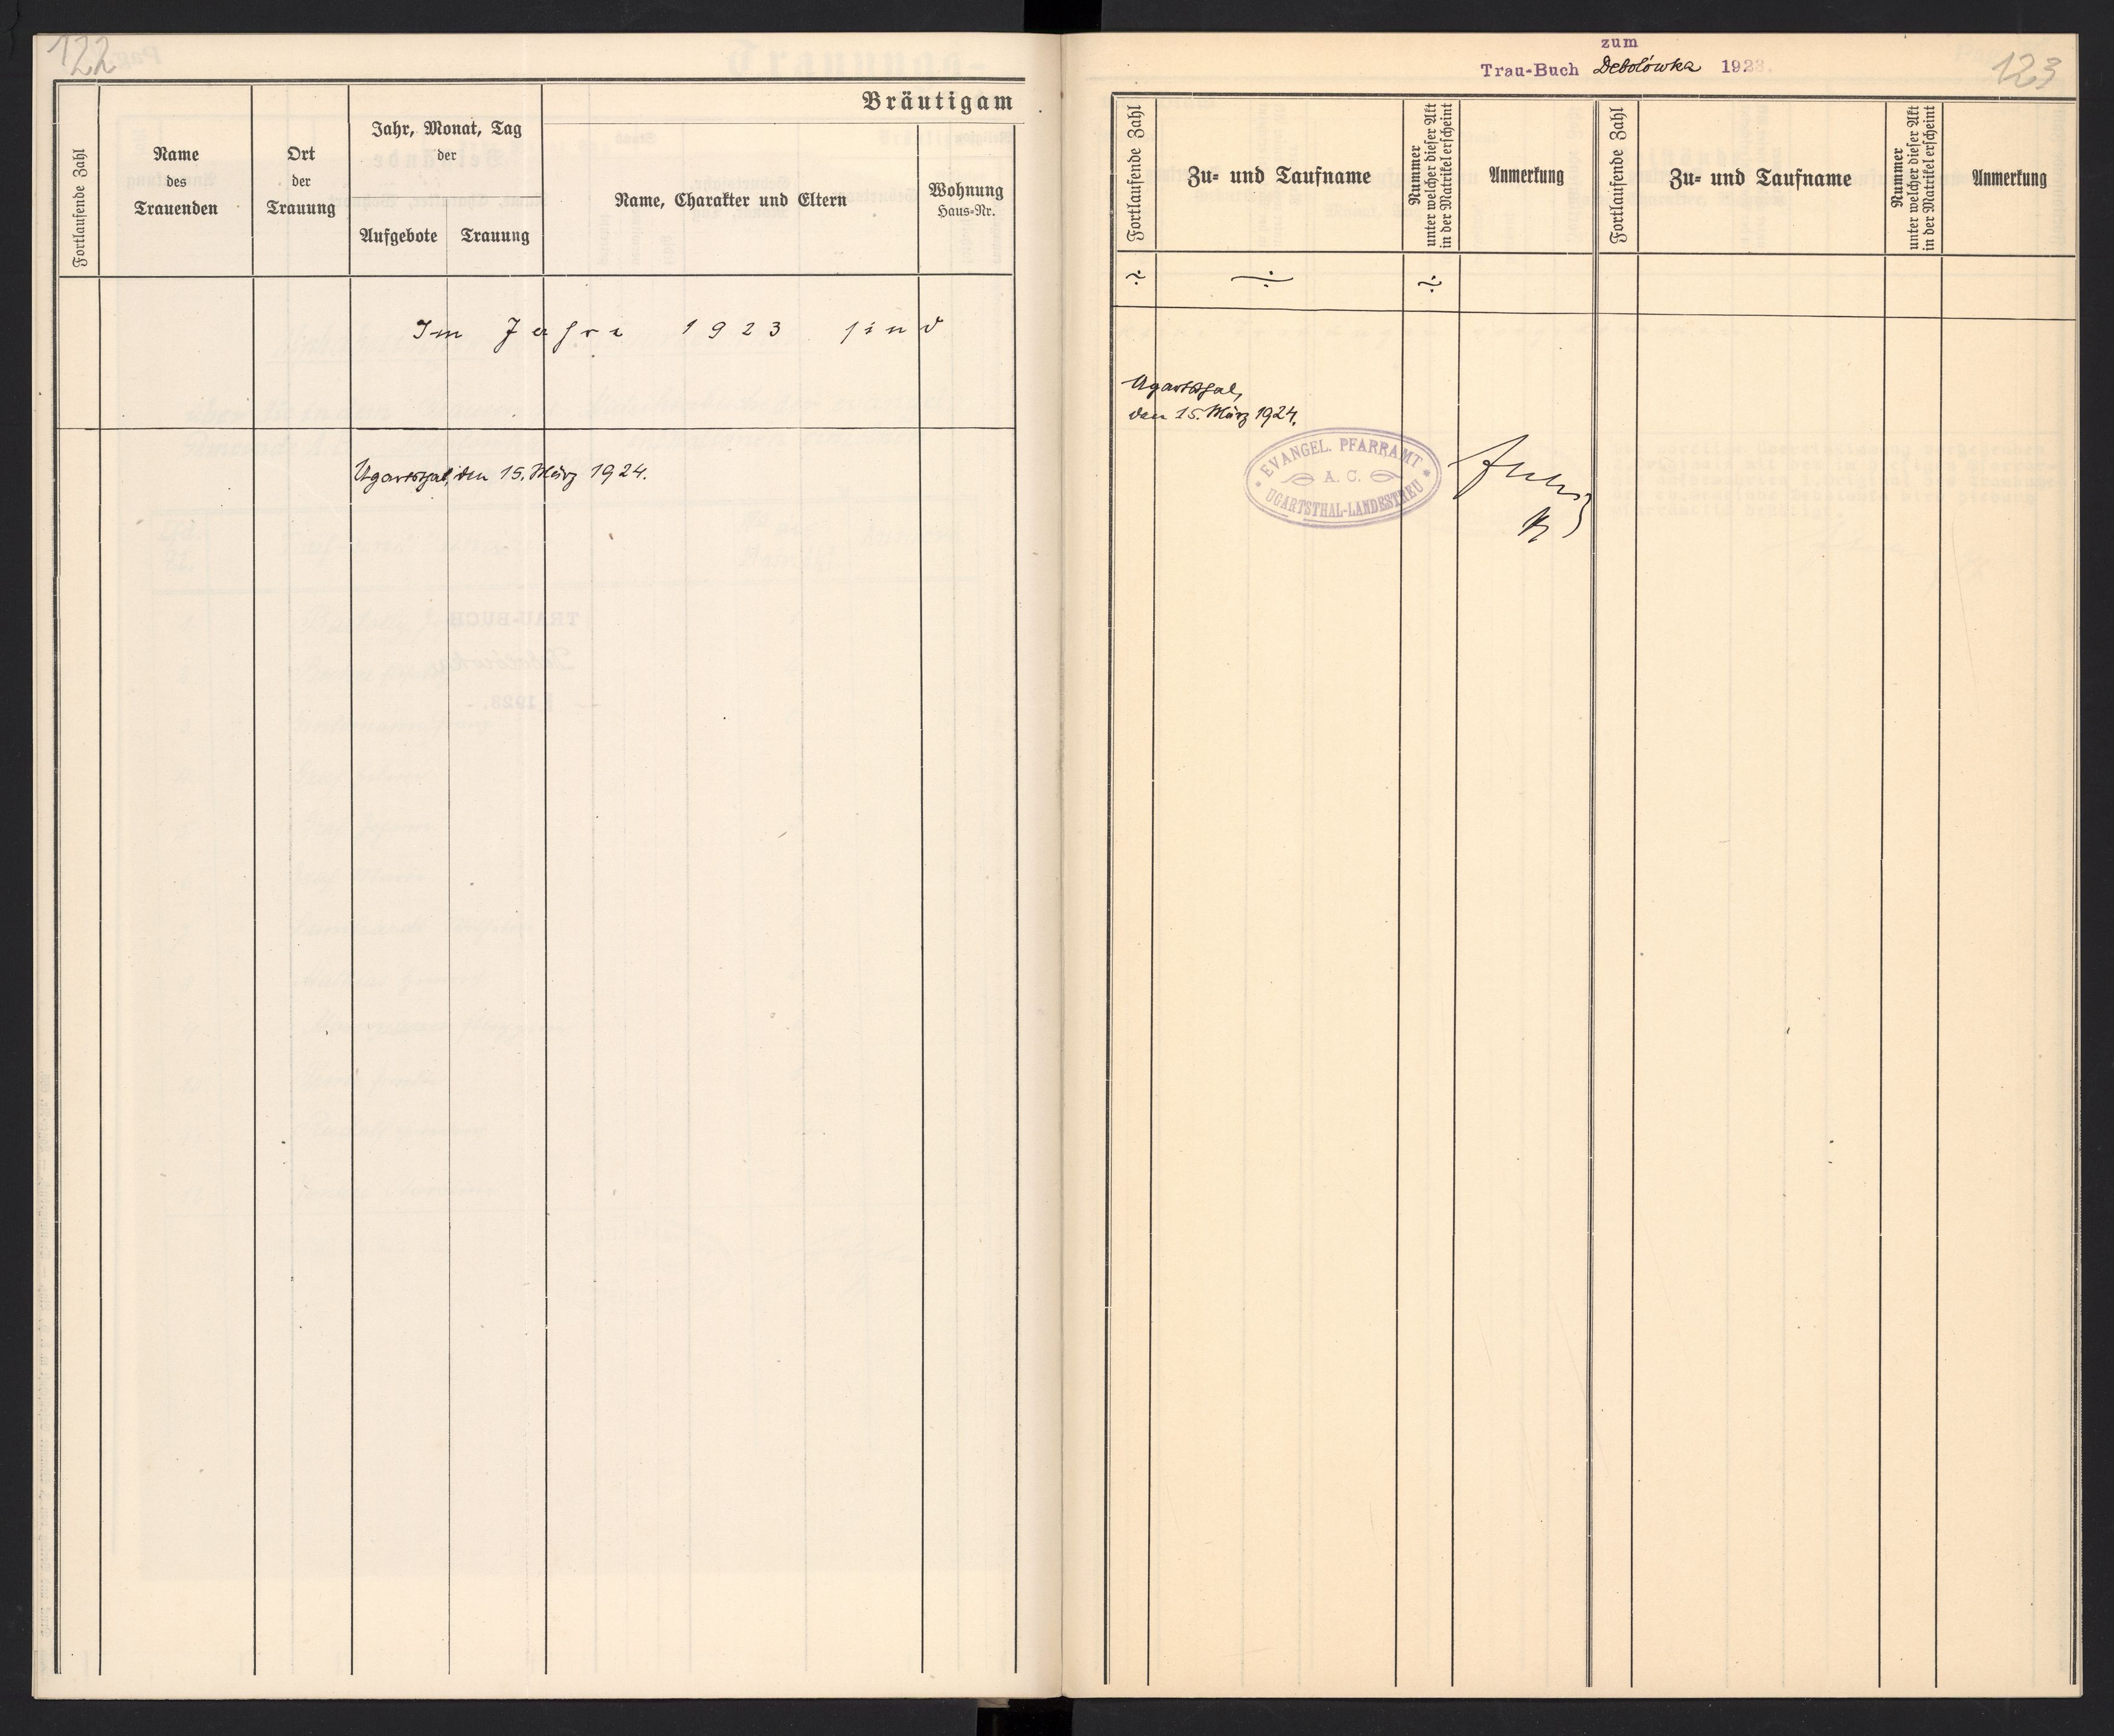 122
Bräutigam
Fortlaufende Zahl
Name
des
Trauenden
Ort
der
Trauung
Jahr, Monat, Tag
der
Aufgebote
Trauung
Name, Charakter und Eltern
Wohnung
Haus-Nr.
Im Jahre 1923 sind
Ugartsthal, den 15. März 1924.
zum
Trau-Buch Debolówka 1923.
123
Fortlaufende Zahl
Zu- und Taufname
Nummer
unter welcher dieser Akt
in der Matrikel erscheint
Anmerkung
Fortlaufende Zahl
Zu- und Taufname
Nummer
unter welcher dieser Akt
in der Matrikel erscheint
Anmerkung
Ugartsthal,
den 15. März 1924.
EVANGEL. PFARRAMT
A. C.
UGARTSTHAL-LANDESTREU